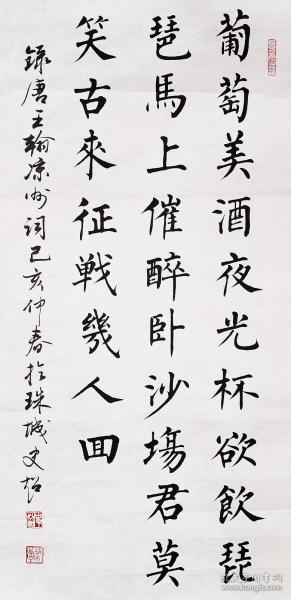 葡萄美酒夜光杯欲飲琵
琶馬上催醉卧沙場君莫
笑古來征戰幾人回
錄唐王翰凉州詞己亥仲春於珠城史